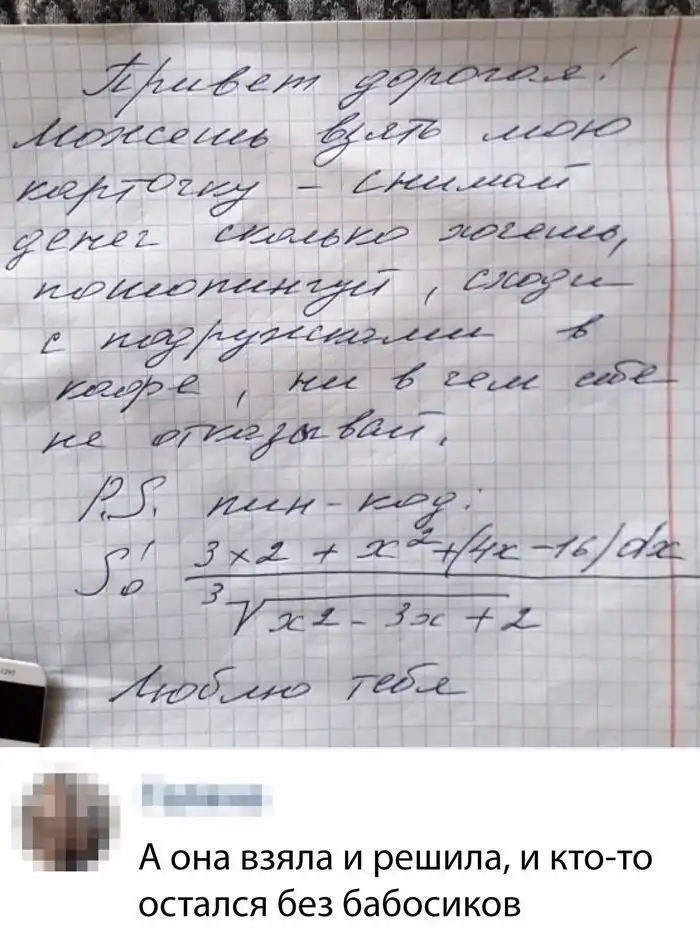 Привет дорогая!
Можешь взять мою
карточку - снимай
денег сколько хочешь,
пошопингуй, сходи
с подружками в
кафе, ни в чем себе
не отказывай.
P.S. пин-код:
∫₀¹ 3×2 + x² + (4x - 16) dx
³√x2 - 3x + 2
Люблю тебя
А она взяла и решила, и кто-то
остался без бабосиков